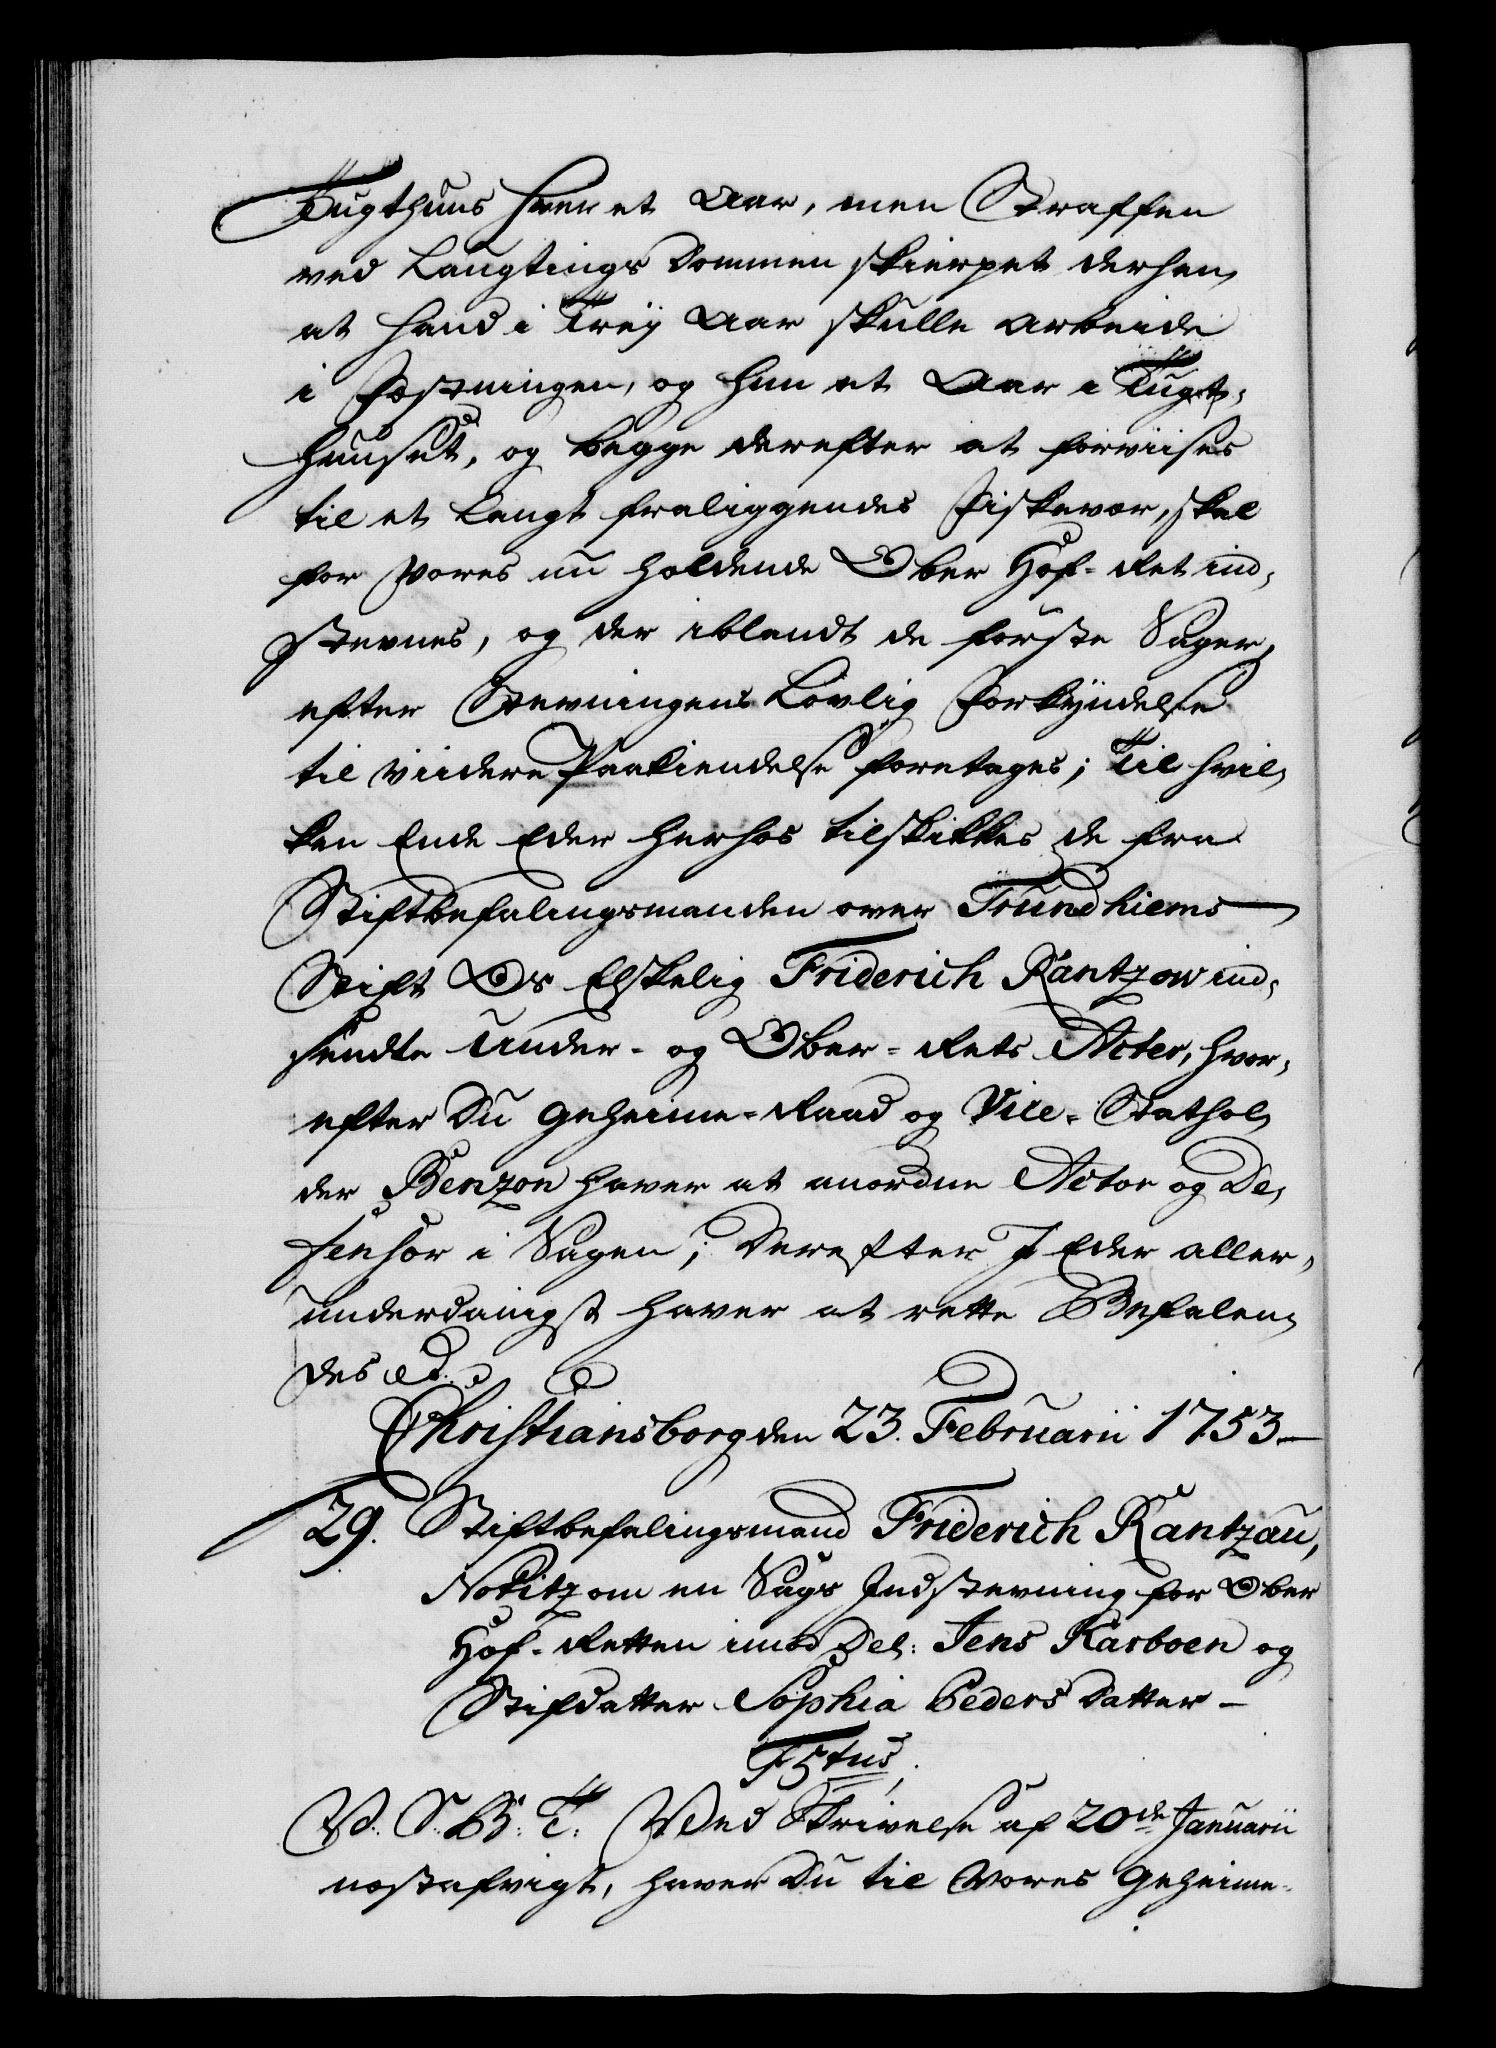 Tugthuus hver et Aar, men Straffen
ved Laugtings Dommen skierpet derhen,
at hand i Trey Aar skulle arbeide
i Fæstningen, og hun et Aar i Tugt-
huuset, og begge derefter at forviises
til et langt fraliggendes Fiskevær, skal
for Vores nu holdende Ober Hof-Ret ind-
stevnes, og der iblandt de første Sager,
efter Stevningens Lovlig Forkyndelse
til viidere Paakiendelse foretages; Til hvil-
ken Ende Eder herhos tilskikkes de fra
Stiftbefalingsmanden over Trundhiems
Stift Os Elskelig Friderich Rantzow ind-
sendte Under- og Ober-Rets Acter, hvor-
efter Du Geheime-Raad og Vice-Stathol-
der Benzon haver at anordne Actor og De-
fensor i Sagen; Derefter I Eder aller-
underdanigst haver at rette Befalen-
des etc.
Christiansborg den 23. Februarii 1753
29. Stiftbefalingsmand Friderich Rantzau,
Notitz om en Sags Indstevning for Ober
Hof-Retten imod Del: Jens Karboen og
Stifdatter Sophia Peders Datter
F5tus,
V. S. B. T. Ved Skrivelse af 20de Januarii
nestafvigt, haver Du til Vores Geheime-